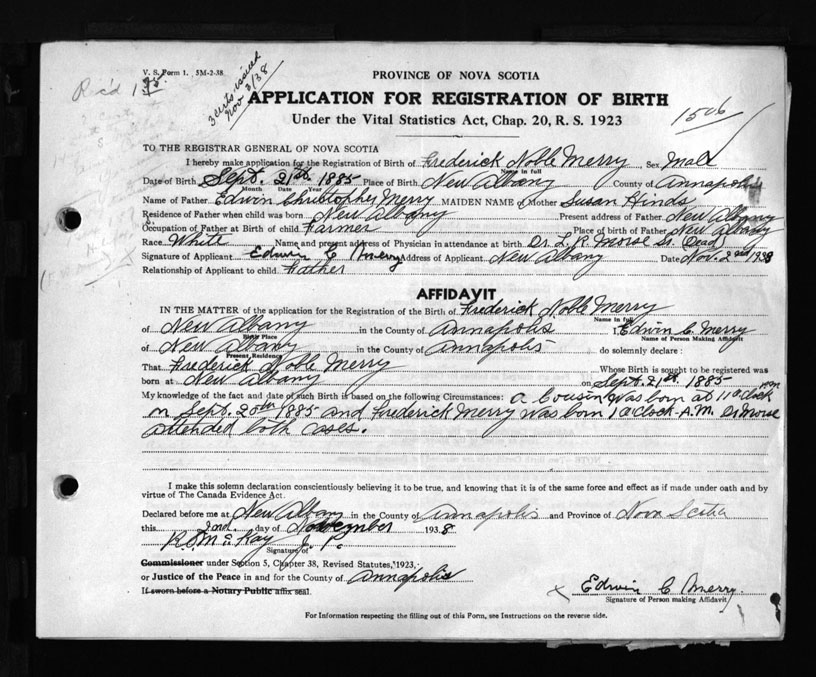 V. S. Form 1. 5M-2-38
Rec'd
3 certs issued
Nov 3/38
PROVINCE OF NOVA SCOTIA
APPLICATION FOR REGISTRATION OF BIRTH
Under the Vital Statistics Act, Chap. 20, R. S. 1923
1506
TO THE REGISTRAR GENERAL OF NOVA SCOTIA
I hereby make application for the Registration of Birth of Frederick Noble Merry Sex Male
Name in full
Date of Birth Sept. 21st. 1885 Place of Birth New Albany County of Annapolis
Month Date Year
Name of Father Edwin Christopher Merry MAIDEN NAME of Mother Susan Hinds
Residence of Father when child was born New Albany Present address of Father New Albany
Occupation of Father at Birth of child Farmer Place of birth of Father New Albany
Race White Name and present address of Physician in attendance at birth Dr. L. R. Morse Sr. (Dead)
Signature of Applicant Edwin C Merry Address of Applicant New Albany Date Nov. 2nd 1938
Relationship of Applicant to child Father
AFFIDAVIT
IN THE MATTER of the application for the Registration of the Birth of Frederick Noble Merry
Name in full
of New Albany in the County of Annapolis I, Edwin C. Merry
Birth Place Name of Person Making Affidavit
of New Albany in the County of Annapolis do solemnly declare:
Present Residence
That Frederick Noble Merry Whose Birth is sought to be registered was
born at New Albany on Sept. 21st. 1885
My knowledge of the fact and date of such Birth is based on the following Circumstances: a Cousin was born at 11 o'clock P.M.
on Sept. 20th 1885 and Frederick Merry was born 1 o'clock A.M. Dr Morse
attended both cases.
I make this solemn declaration conscientiously believing it to be true, and knowing that it is of the same force and effect as if made under oath and by
virtue of The Canada Evidence Act.
Declared before me at New Albany in the County of Annapolis and Province of Nova Scotia
this 2nd day of November 1938
R. McKay J. P.
Signature of
Commissioner under Section 5, Chapter 38, Revised Statutes, 1923,
or Justice of the Peace in and for the County of Annapolis
If sworn before a Notary Public affix seal.
x Edwin C Merry
Signature of Person making Affidavit
For Information respecting the filling out of this Form, see Instructions on the reverse side.